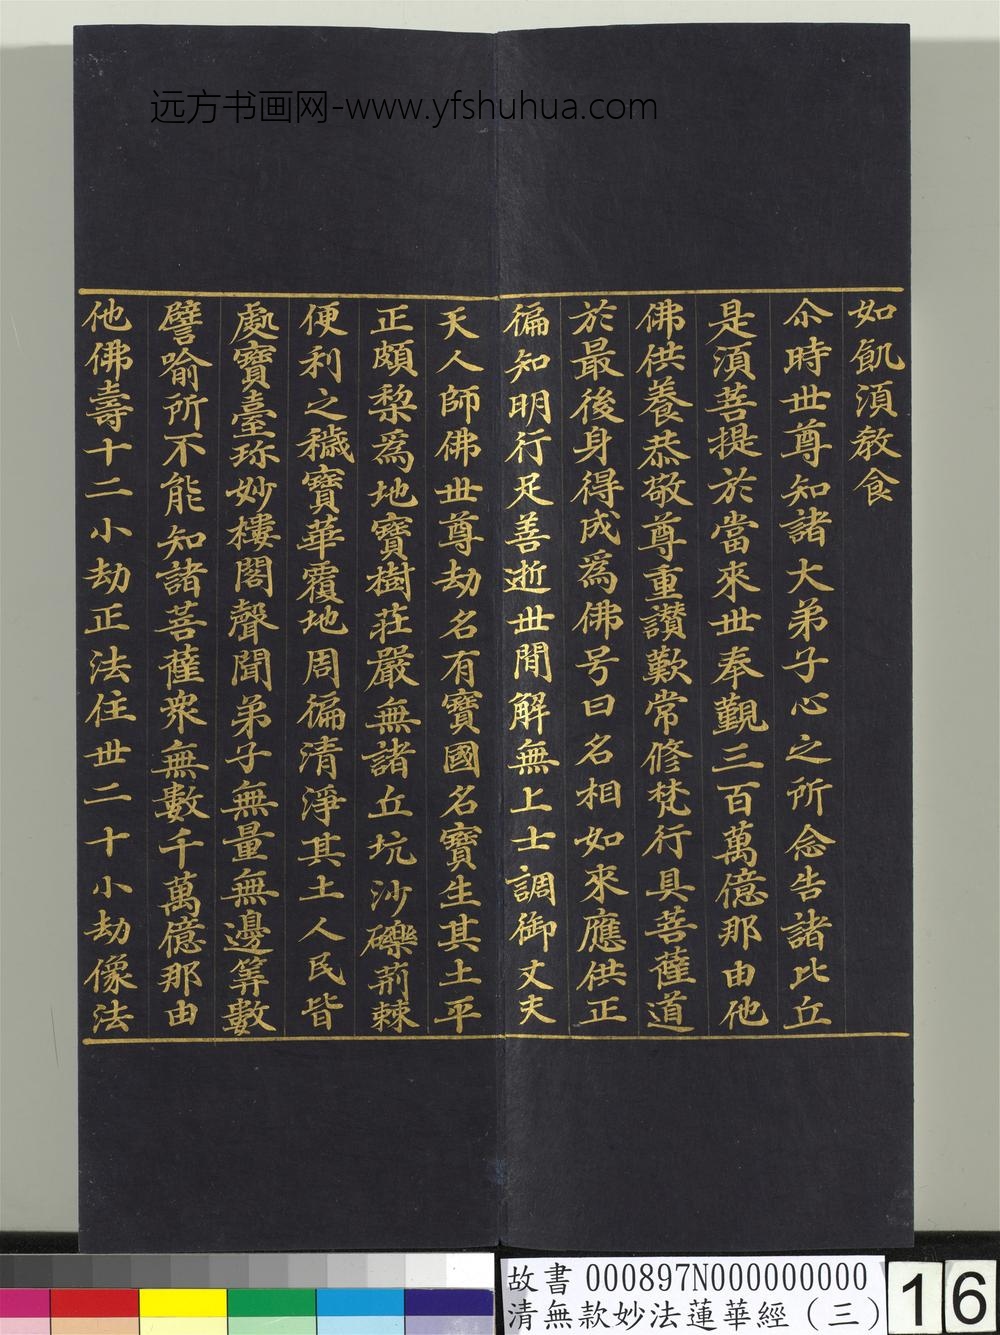 远方书画网-www.yfshuhua.com
如飢須教食
尒時世尊知諸大弟子心之所念告諸比丘
是須菩提於當來世奉觐三百萬億那由他
佛供養恭敬尊重讚歎常修梵行具菩薩道
於最後身得成為佛号曰名相如來應供正
徧知明行足善逝世間解無上士調御丈夫
天人師佛世尊劫名有寶國名寶生其土平
正頗黎為地寶樹莊嚴無諸丘坑沙礫荊棘
便利之穢寶華覆地周徧清淨其土人民皆
處寶臺珎妙樓閣聲聞弟子無量無邊筭數
譬喻所不能知諸菩薩衆無數千萬億那由
他佛壽十二小劫正法住世二十小劫像法
故書 000897N000000000
清無款妙法蓮華經（三）
16